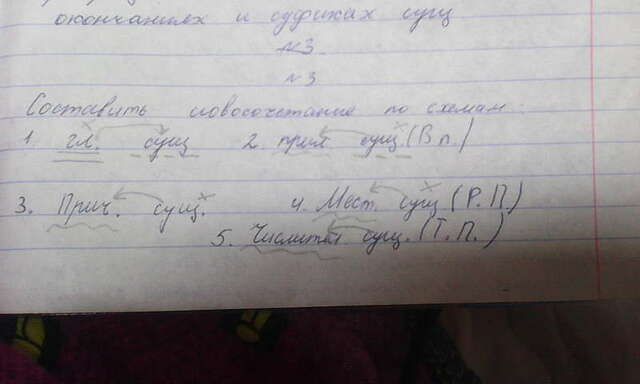 окончаниях и суфиксах сущ
№3
№3
Составить словосочетание по схемам:
1 гл. сущ 2. прил сущ (В п.)
3. Прич. сущ. 4. Мест. сущ (Р. П.)
5. Числител сущ. (Т. П.)